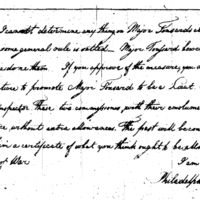 I cannot determine any thing on Major Tousards
some general rule is settled. Major Tousard
done them. If you approve of the measure, you
to promote Major Tousard to be a Lieut
Inspector. These two commissions with their
without extra allowances. The post will
in a certificate of what you think ought to be
War
I am
Philadelph